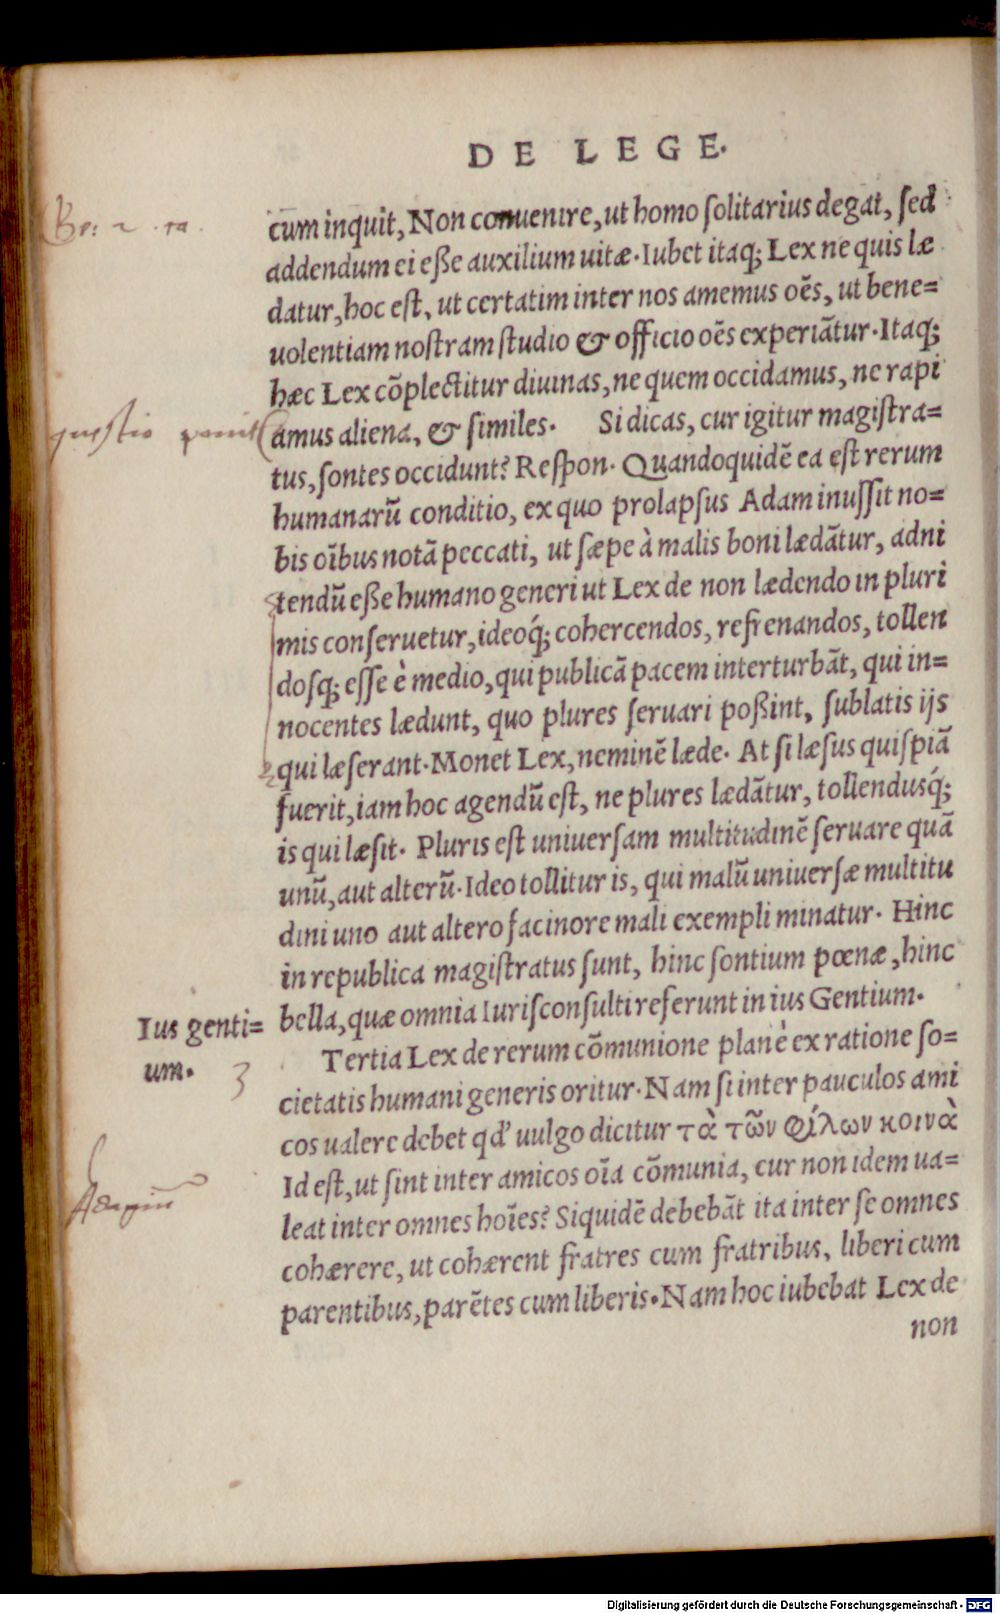 DE LEGE.
cum inquit, Non conuenire, ut homo ſolitarius degat, ſed
addendum ei eſße auxilium uitæ. Iubet itaq; Lex ne quis læ
datur, hoc eſt, ut certatim inter nos amemus oēs, ut bene=
uolentiam noſtram ſtudio & officio oēs experiātur. Itaq;
hæc Lex cōplectitur diuinas, ne quem occidamus, ne rapi
amus aliena, & ſimiles. Si dicas, cur igitur magiſtra=
tus, ſontes occidunt? Reſpon. Quandoquidē ea eſt rerum
humanarū conditio, ex quo prolapſus Adam inuſſit no=
bis oībus notā peccati, ut ſæpe à malis boni lædātur, adni
tendū eſße humano generi ut Lex de non lædendo in pluri
mis conſeruetur, ideoq́; cohercendos, refrenandos, tollen
doſq; eſſe è medio, qui publicā pacem interturbāt, qui in=
nocentes lædunt, quo plures ſeruari poßint, ſublatis ijs
qui læſerant. Monet Lex, neminē læde. At ſi læſus quiſpiā
fuerit, iam hoc agendū eſt, ne plures lædātur, tollendusq́;
is qui læſit. Pluris eſt uniuerſam multitudinē ſeruare quā
unū, aut alterū. Ideo tollitur is, qui malū uniuerſæ multitu
dini uno aut altero facinore mali exempli minatur. Hinc
in republica magiſtratus ſunt, hinc ſontium pœnæ, hinc
bella, quæ omnia Iuriſconſulti referunt in ius Gentium.
Ius genti=
um.
3
Tertia Lex de rerum cōmunione planè ex ratione ſo=
cietatis humani generis oritur. Nam ſi inter pauculos ami
cos ualere debet qd' uulgo dicitur τὰ τῶν φίλων κοινὰ
Id eſt, ut ſint inter amicos oīa cōmunia, cur non idem ua=
leat inter omnes hoīes? Siquidē debebāt ita inter ſe omnes
cohærere, ut cohærent fratres cum fratribus, liberi cum
parentibus, parētes cum liberis. Nam hoc iubebat Lex de
non
Adagiū
Digitalisierung gefördert durch die Deutsche Forschungsgemeinschaft - DFG